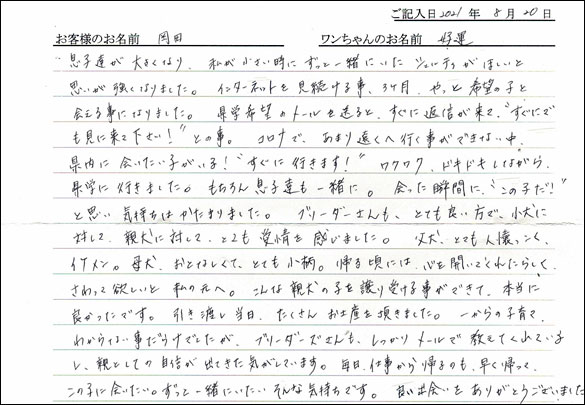 ご記入日 2021 年 8 月 20 日
お客様のお名前 岡田 ワンちゃんのお名前 好運
息子達が大きくなり、私が小さい時にずっと一緒にいたシェルティがほしいと
思いが強くなりました。インターネットを見続ける事、3ヶ月、やっと希望の子と
会える事になりました。見学希望のメールを送ると、すぐに返信が来て、"すぐにで
も見に来て下さい!"との事。コロナで、あまり遠くへ行く事ができない中、
県内に会いたい子がいる!"すぐに行きます!"ワクワク、ドキドキしながら、
見学に行きました。もちろん息子達も一緒に。会った瞬間に、"この子だ!"
と思い気持ちはかたまりました。ブリーダーさんも、とても良い方で、小犬に
対して、親犬に対して、とても愛情を感じました。父犬、とても人懐っこく、
イケメン。母犬、おとなしくて、とても小柄。帰る頃には、心を開いてくれたらしく、
さわって欲しいと私の元へ。こんな親犬の子を譲り受ける事ができて、本当に
良かったです。引き渡し当日、たくさんお土産を頂きました。一からの子育て、
わからない事だらけでしたが、ブリーダーさんも、しっかりメールで教えてくれている
し、親としての自信が出てきた気がしています。毎日、仕事から帰るのも、早く帰って、
この子に会いたい。ずっと一緒にいたいそんな気持ちです。良い出会いをありがとうございました